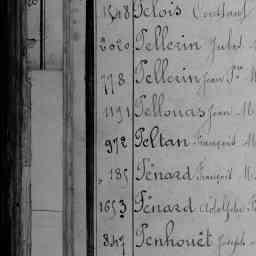 1598 Pelois Constant
2020 Pellerin Jules
778 Pellerin Jean Pre M
1191 Pellouas Jean M
972 Peltan François M
185 Pénard François M
1653 Pénard Adolphe
847 Penhouët Joseph